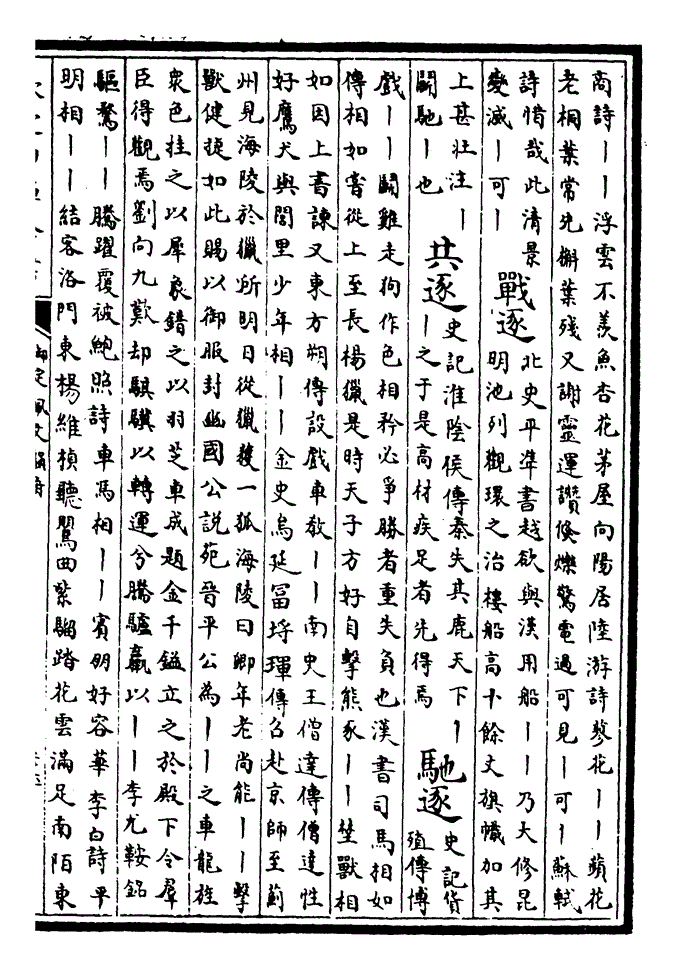 商詩｜｜浮雲不羨魚杏花茅屋向陽居陸游詩蓼花｜｜蘋花
老桐葉常先槲葉殘又謝靈運讚倏爍驚電過可見｜可｜蘇軾
詩惜哉此清景
變滅｜可｜
戰逐
北史平準書越欲與漢用船｜｜乃大修昆
明池列觀環之治樓船高十餘丈旗幟加其
上甚壯注｜
鬬馳｜也
共逐
史記淮陰侯傳秦失其鹿天下｜
｜之于是高材疾足者先得焉
馳逐
史記貨
殖傳博
戲｜｜鬬雞走狗作色相矜必爭勝者重失負也漢書司馬相如
傳相如嘗從上至長楊獵是時天子方好自擊熊豕｜｜壄獸相
如因上書諫又東方朔傳設戲車教｜｜南史王僧達傳僧達性
好鷹犬與閭里少年相｜｜金史烏延冨埒琿傳召赴京師至薊
州見海陵於獵所明日從獵獲一狐海陵曰卿年老尚能｜｜擊
獸健捷如此賜以御服封豳國公説苑晉平公為｜｜之車龍旌
衆色挂之以犀象錯之以羽芝車成題金千鎰立之於殿下令羣
臣得觀焉劉向九歎却騏驥以轉運兮騰驢臝以｜｜李尤鞍銘
驅騖｜｜騰躍覆被鮑照詩車馬相｜｜賓朋好容華李白詩平
明相｜｜結客洛門東楊維楨聽鶯曲紫騮踏花雲滿足南陌東
御定佩文韻府